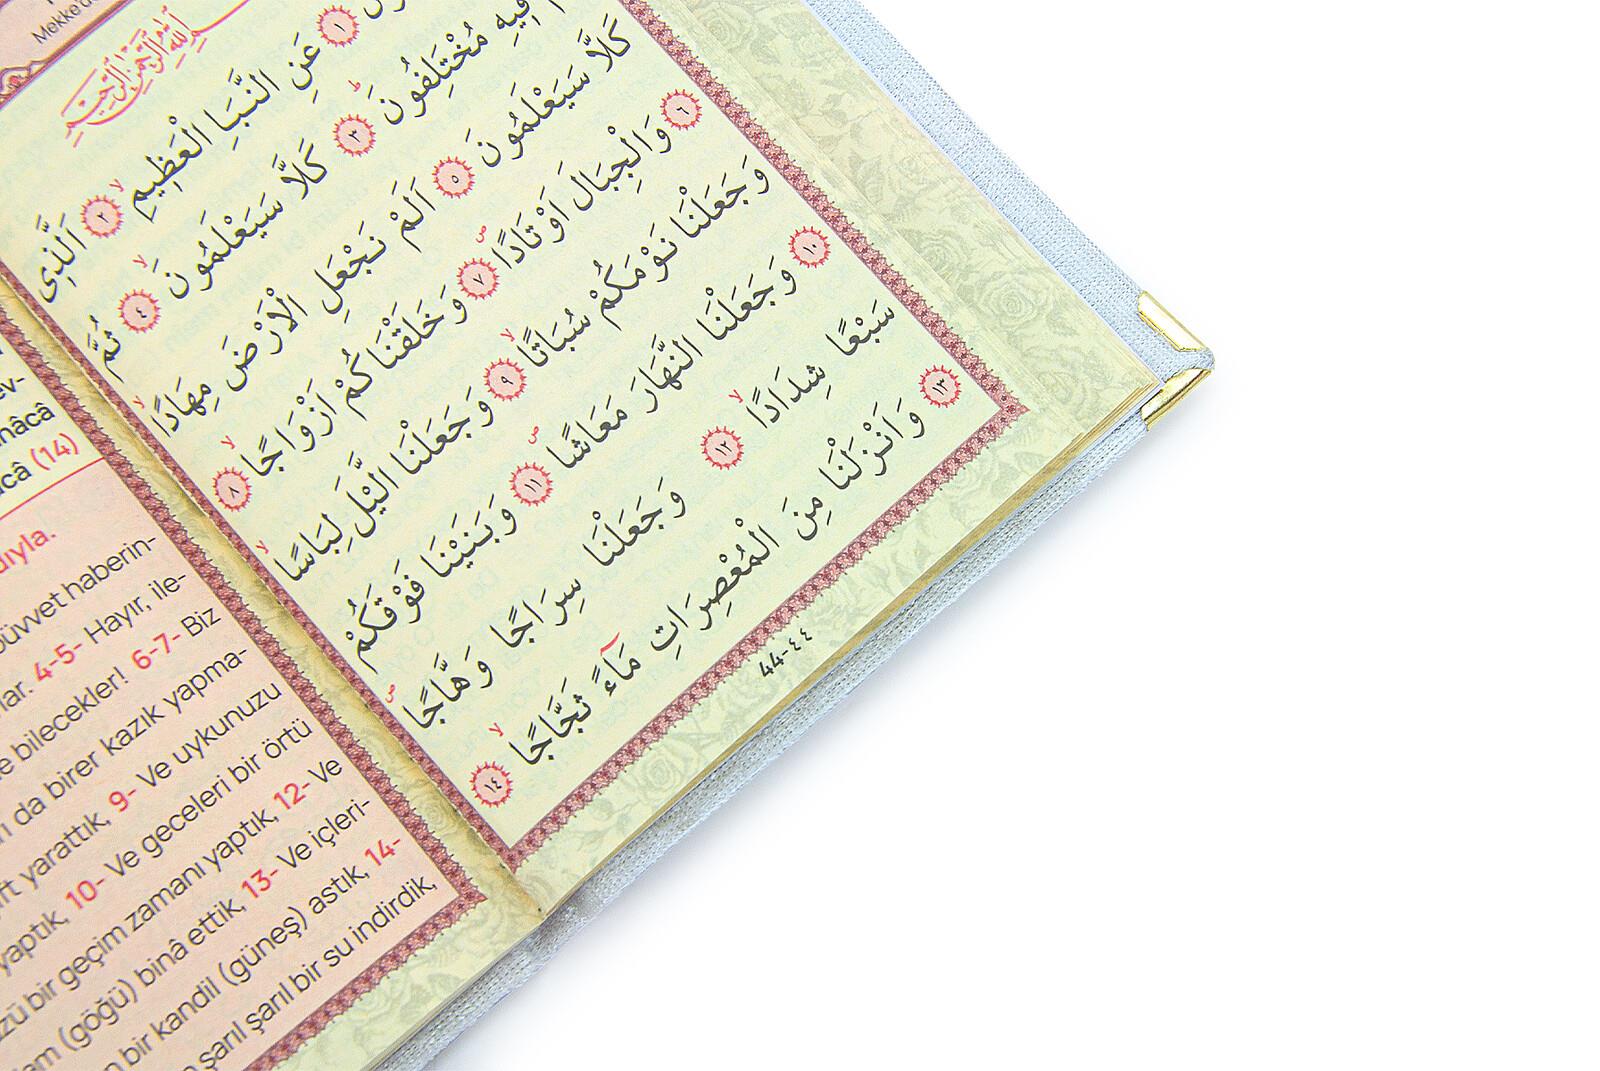 Mekke'de
بِسْمِ اللّٰهِ الرَّحْمٰنِ الرَّحِيمِ
١ عَنِ النَّبَاِ الْعَظِيمِۙ ٢ اَلَّذِى
فِيهِ مُخْتَلِفُونَۜ ٣ كَلَّا سَيَعْلَمُونَۙ ٤ ثُمَّ
كَلَّا سَيَعْلَمُونَ ٥ اَلَمْ نَجْعَلِ الْاَرْضَ مِهَادًاۙ
٦ وَالْجِبَالَ اَوْتَادًاۖ ٧ وَخَلَقْنَاكُمْ اَزْوَاجًاۙ ٨
وَجَعَلْنَا نَوْمَكُمْ سُبَاتًاۙ ٩ وَجَعَلْنَا الَّيْلَ لِبَاسًاۙ
١٠ وَجَعَلْنَا النَّهَارَ مَعَاشًاۖ ١١ وَبَنَيْنَا فَوْقَكُمْ
سَبْعًا شِدَادًاۙ ١٢ وَجَعَلْنَا سِرَاجًا وَهَّاجًاۖ
١٣ وَاَنْزَلْنَا مِنَ الْمُعْصِرَاتِ مَٓاءً ثَجَّاجًاۙ ١٤
44-٤٤
ev-
hâcâ
câ (14)
dıyla.
büvvet haberin-
lar. 4-5- Hayır, ile-
e bilecekler! 6-7- Biz
da birer kazık yapma-
ft yarattık, 9- Ve uykunuzu
yaptık, 10- Ve geceleri bir örtü
zü bir geçim zamanı yaptık, 12- Ve
am (göğü) binâ ettik, 13- Ve içleri-
bir kandil (güneş) astık, 14-
şarıl şarıl bir su indirdik,